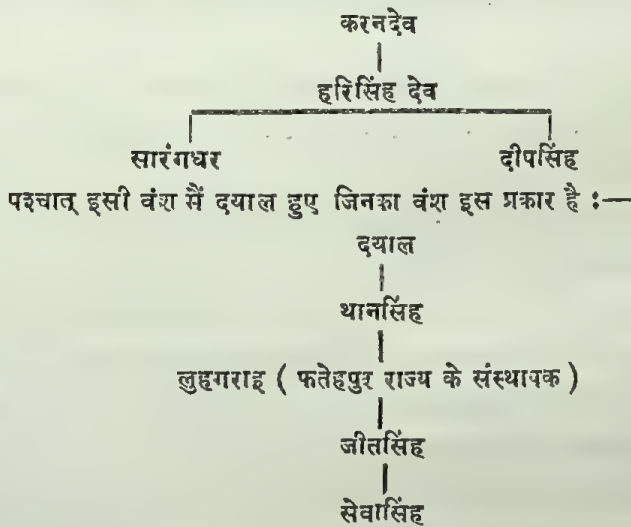 करनदेव
हरिसिंह देव
सारंगधर दीपसिंह
पश्चात् इसी वंश मैं दयाल हुए जिनका वंश इस प्रकार है :—
दयाल
थानसिंह
लुहगराइ ( फतेहपुर राज्य के संस्थापक )
जीतसिंह
सेवासिंह